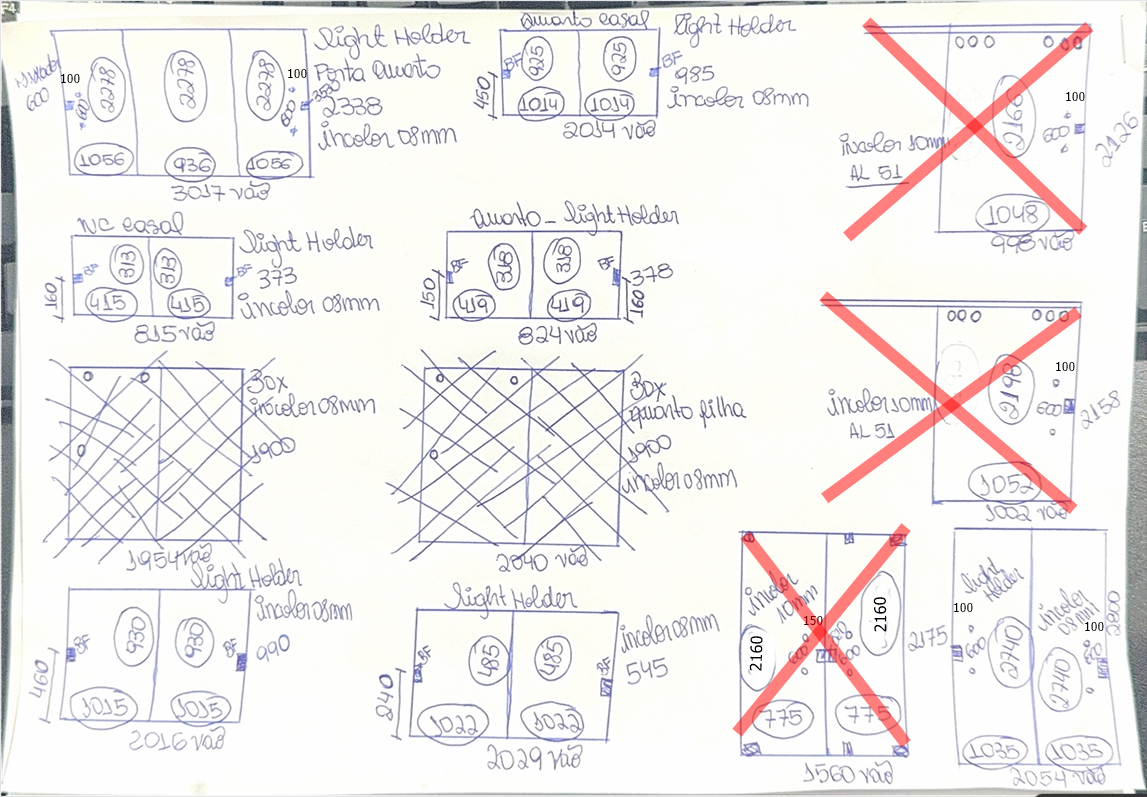 F4
100
600
2278
2278
2278
600
100
600
1056
936
1056
3017 vão
Light Holder
Porta Quarto
2338
incolor 08mm
Quarto Casal
450
BF
925
925
BF
1014
1014
2014 vão
Light Holder
985
incolor 08mm
incolor 10mm
AL 51
2166
600
100
2126
1048
998 vão
WC Casal
160
BF
313
313
BF
415
415
815 vão
Light Holder
373
incolor 08mm
Quarto - Light Holder
150
BF
318
318
BF
419
419
160
378
824 vão
30x
incolor 08mm
1900
1954 vão
30x
quarto filha
1900
incolor 08mm
2040 vão
incolor 10mm
AL 51
2198
600
100
2158
1052
1002 vão
Light Holder
460
BF
930
930
BF
1015
1015
2016 vão
incolor 08mm
990
Light Holder
240
BF
485
485
BF
1022
1022
2029 vão
incolor 08mm
545
incolor
10mm
2160
150
600
600
2160
775
775
1560 vão
2175
100
Light
Holder
600
2740
incolor
08mm
100
600
2740
2800
1035
1035
2054 vão